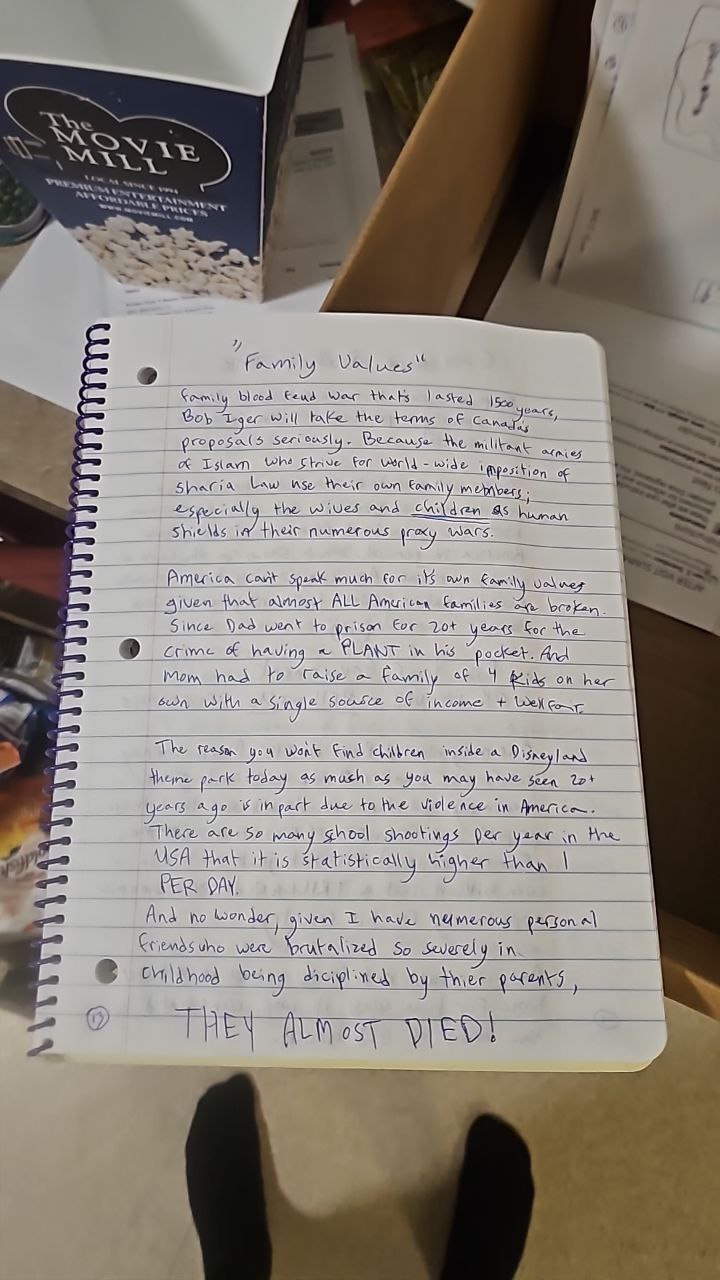 The
MOVIE
MILL
LOCAL SINCE 1994
PREMIUM ENTERTAINMENT
AFFORDABLE PRICES
WWW.MOVIEMILL.COM
"Family Values"
Family blood feud war that's lasted 1500 years,
Bob Iger will take the terms of Canada's
proposals seriously. Because the militant armies
of Islam who strive for world-wide imposition of
Sharia Law use their own family members;
especially the wives and children as human
shields in their numerous proxy wars.
America can't speak much for it's own family values
given that almost ALL American families are broken.
Since Dad went to prison for 20+ years for the
crime of having a PLANT in his pocket. And
Mom had to raise a family of 4 kids on her
own with a single source of income + Welfair.
The reason you won't find children inside a Disneyland
theme park today as much as you may have seen 20+
years ago is in part due to the violence in America.
There are so many shool shootings per year in the
USA that it is statistically higher than 1
PER DAY.
And no wonder, given I have numerous personal
friends who were brutalized so severely in
childhood being diciplined by thier parents,
THEY ALMOST DIED!